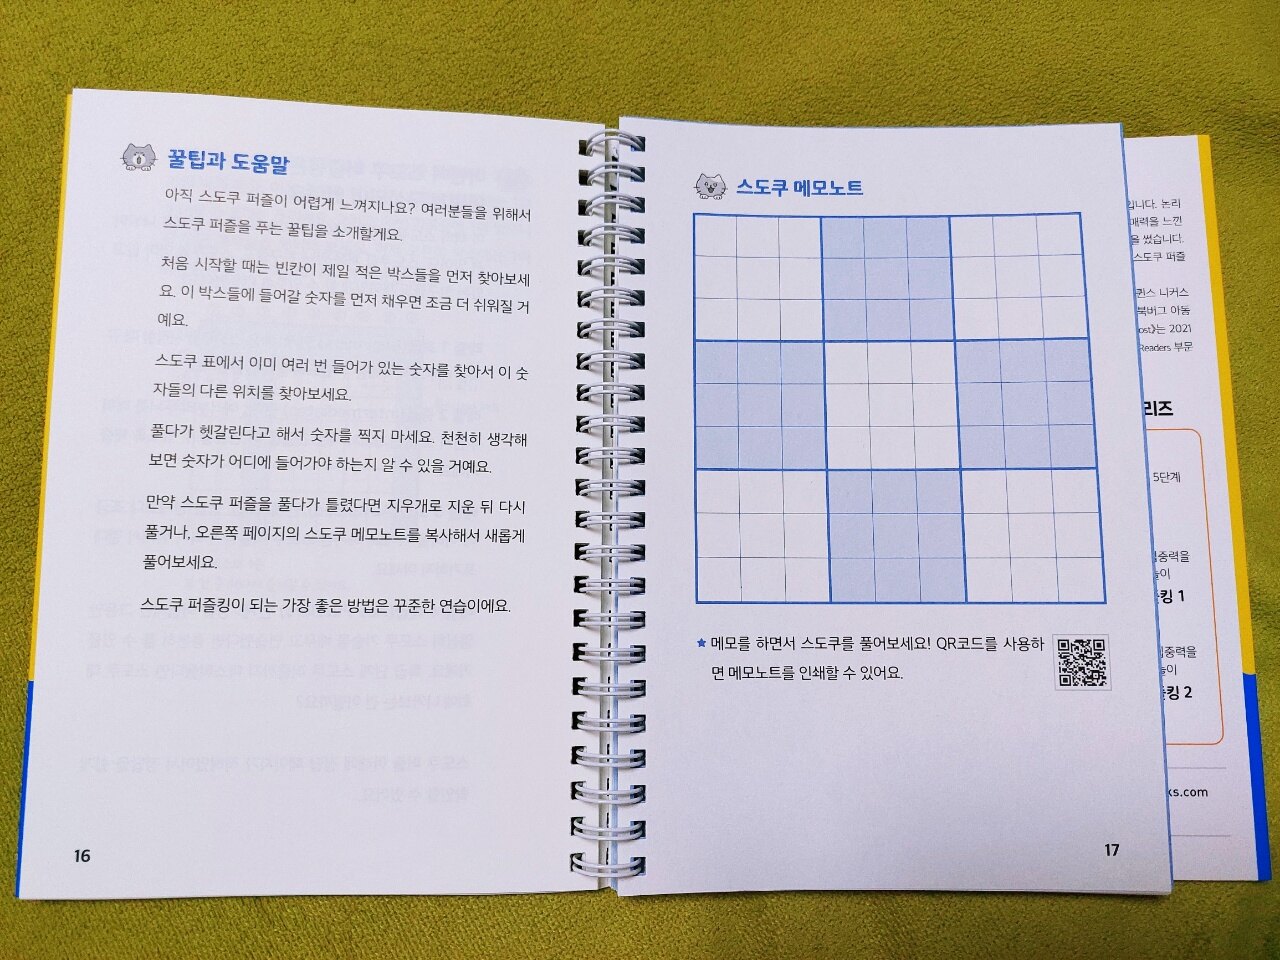 꿀팁과 도움말
아직 스도쿠 퍼즐이 어렵게 느껴지나요? 여러분들을 위해서
스도쿠 퍼즐을 푸는 꿀팁을 소개할게요.
처음 시작할 때는 빈칸이 제일 적은 박스들을 먼저 찾아보세
요. 이 박스들에 들어갈 숫자를 먼저 채우면 조금 더 쉬워질 거
예요.
스도쿠 표에서 이미 여러 번 들어가 있는 숫자를 찾아서 이 숫
자들의 다른 위치를 찾아보세요.
풀다가 헷갈린다고 해서 숫자를 찍지 마세요. 천천히 생각해
보면 숫자가 어디에 들어가야 하는지 알 수 있을 거예요.
만약 스도쿠 퍼즐을 풀다가 틀렸다면 지우개로 지운 뒤 다시
풀거나, 오른쪽 페이지의 스도쿠 메모노트를 복사해서 새롭게
풀어보세요.
스도쿠 퍼즐킹이 되는 가장 좋은 방법은 꾸준한 연습이에요.
16
스도쿠 메모노트
★ 메모를 하면서 스도쿠를 풀어보세요! QR코드를 사용하
면 메모노트를 인쇄할 수 있어요.
17
입니다. 논리
매력을 느낀
을 썼습니다.
스도쿠 퍼즐
퀸스 니커스
북버그 아동
ost》는 2021
Readers 부문
리즈
5단계
집중력을
놀이
킹 1
집중력을
놀이
킹 2
ks.com